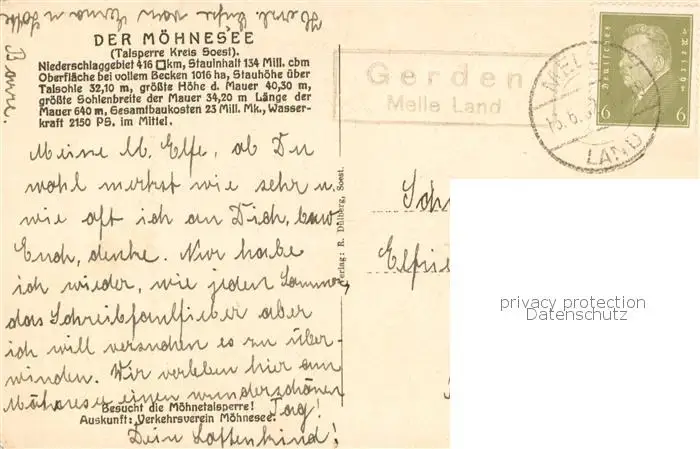 Herzl. Grüße von
Bonne.
DER MÖHNESEE
(Talsperre Kreis Soest).
Niederschlaggebiet 416 □km, Stauinhalt 134 Mill. cbm
Oberfläche bei vollem Becken 1016 ha, Stauhöhe über
Talsohle 32,10 m, größte Höhe d. Mauer 40,30 m,
größte Sohlenbreite der Mauer 34,20 m Länge der
Mauer 640 m, Gesamtbaukosten 23 Mill. Mk., Wasser-
kraft 2150 PS. im Mittel.
Meine lb. Elfe, ob Du
wohl merkst wie sehr u.
wie oft ich an Dich, bzw
Euch, denke. Nur habe
ich wieder, wie jeden Sommer,
das Schreibfaulfieber aber
ich will versuchen es zu über-
winden. Wir verleben hier am
Möhnesee einen wunderschönen
Tag!
Besucht die Möhnetalsperre!
Auskunft: Verkehrsverein Möhnesee.
Dein
Verlag: R. Dülberg, Soest.
Gerden
Melle Land
LAND
Deutsches Reich
6 6
privacy protection
Datenschutz